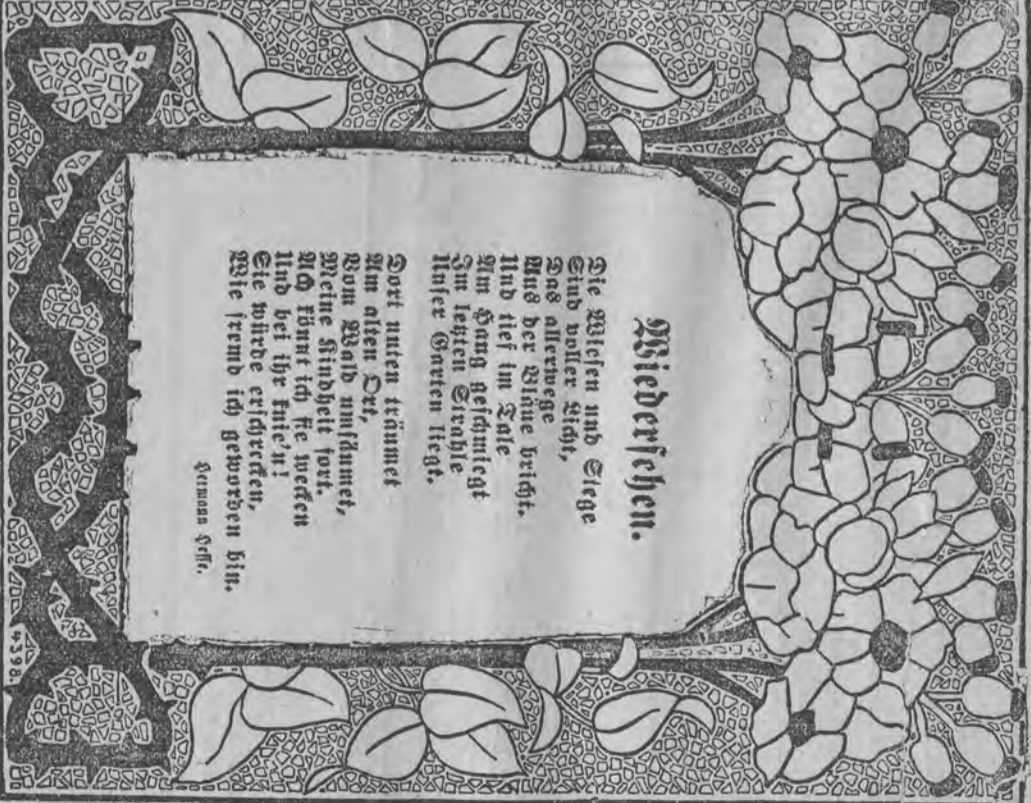 Wiedersehen.
Die Wiesen und Stege
Sind voller Licht,
Das allerwege
Aus der Bläue bricht.
Und tief im Tale
Am Hang geschmiegt
Im letzten Strahle
Unser Garten liegt.
Dort unten träumet
Am alten Ort,
Vom Wald umsäumet,
Meine Kindheit fort.
Ach könnt ich sie wecken
Und bei ihr knie'n!
Sie würde erschrecken,
Wie fremd ich geworden bin.
Hermann Hesse.
4398